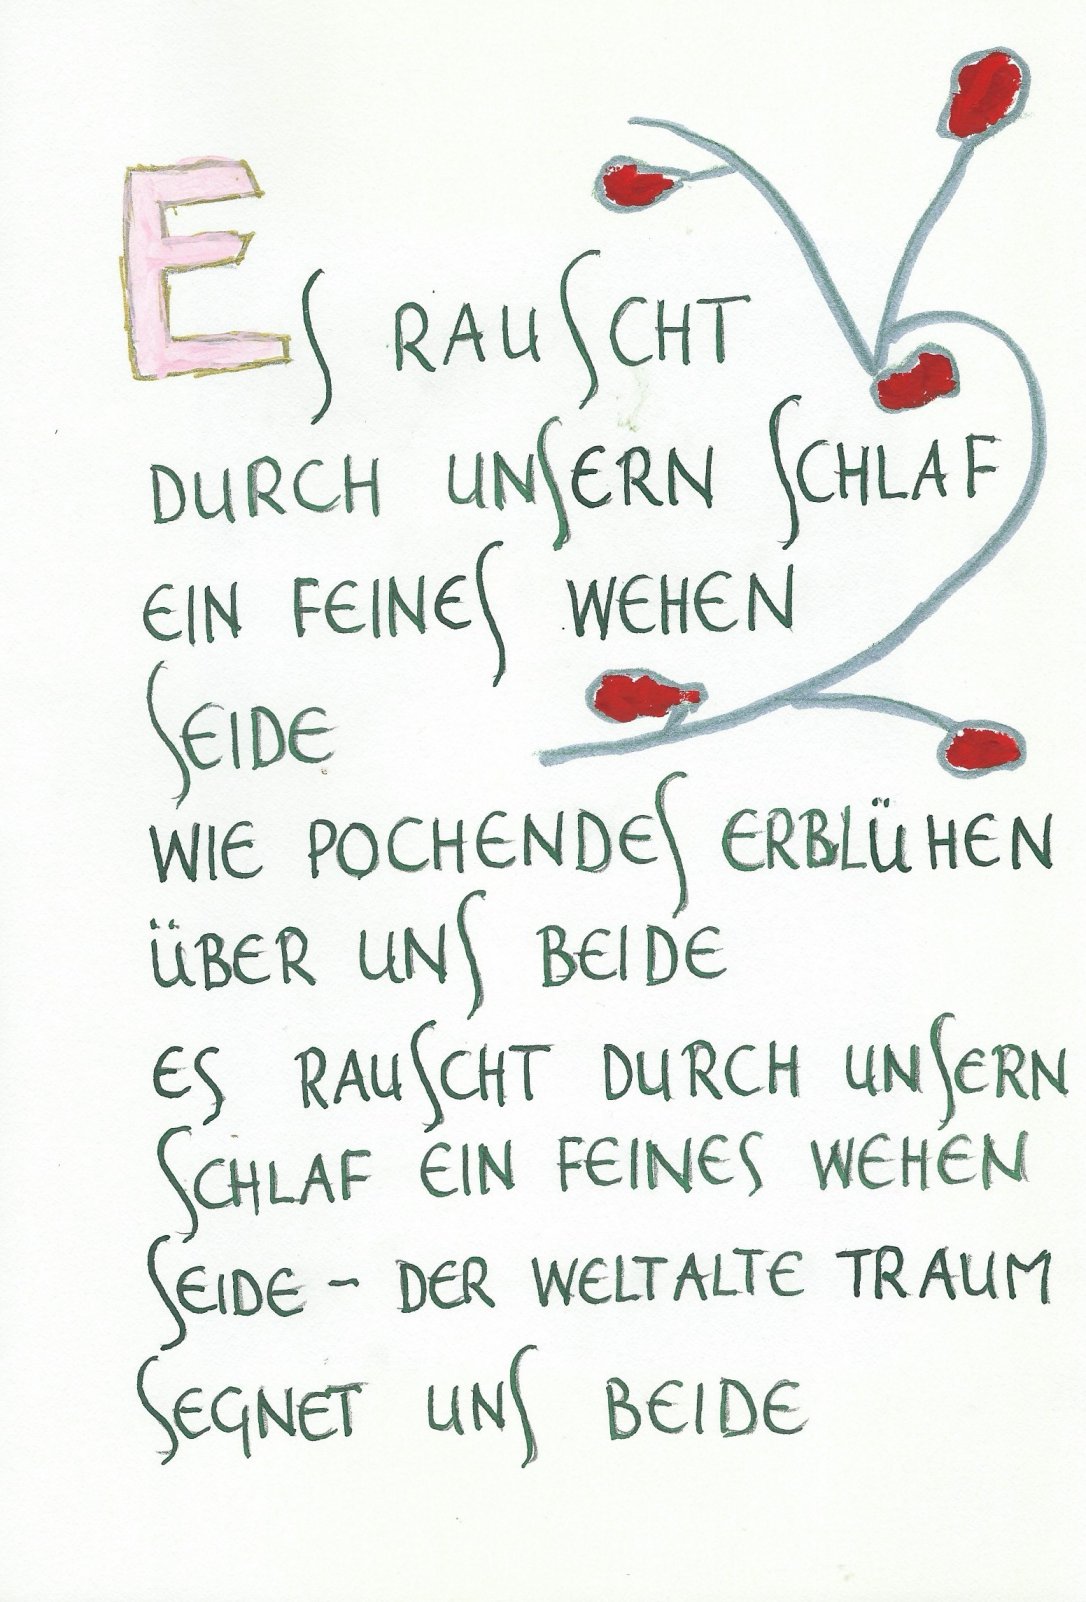 ES RAUSCHT
DURCH UNSERN SCHLAF
EIN FEINES WEHEN
SEIDE
WIE POCHENDES ERBLÜHEN
ÜBER UNS BEIDE
ES RAUSCHT DURCH UNSERN
SCHLAF EIN FEINES WEHEN
SEIDE – DER WELTALTE TRAUM
SEGNET UNS BEIDE